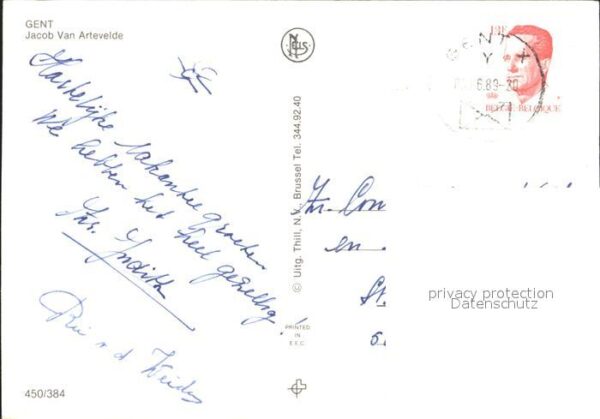 GENT
Jacob Van Artevelde
Hartelijke vakantie groeten
We hebben het heel gezellig!
Judith
Nels
© Uitg. Thill, N.V. Brussel Tel. 344.92.40
PRINTED
IN
E.E.C.
450/384
GENT X
Y
6.89-20
BELGIË-BELGIQUE
en
privacy protection
Datenschutz